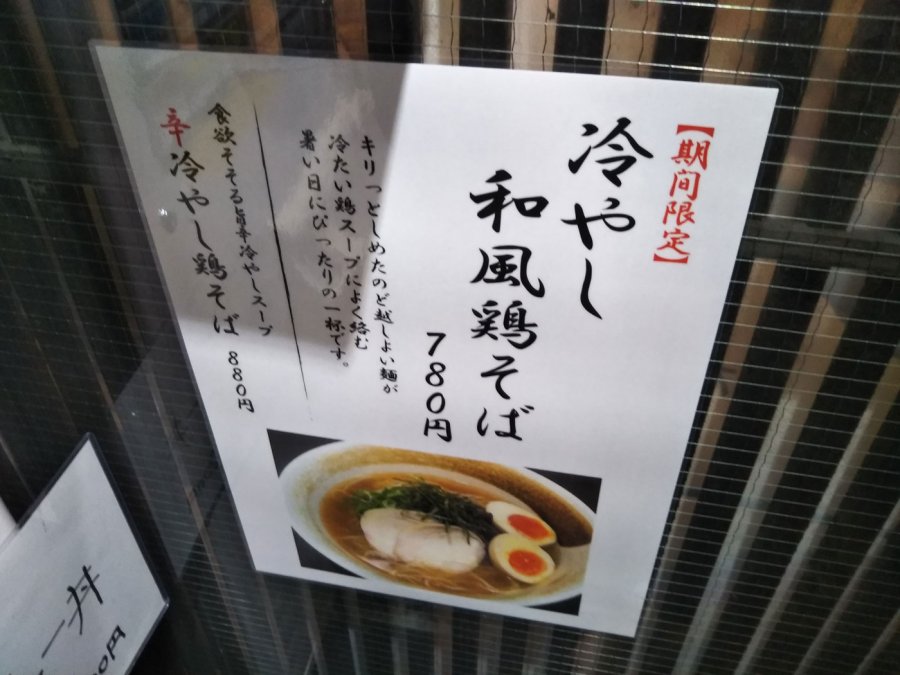 【期間限定】
冷やし
和風鶏そば
780円
キリっとしめたのど越しよい麺が
冷たい鶏スープによく絡む
暑い日にぴったりの一杯です。
食欲そそる旨辛冷やしスープ
辛冷やし鶏そば 880円
ー丼
00円